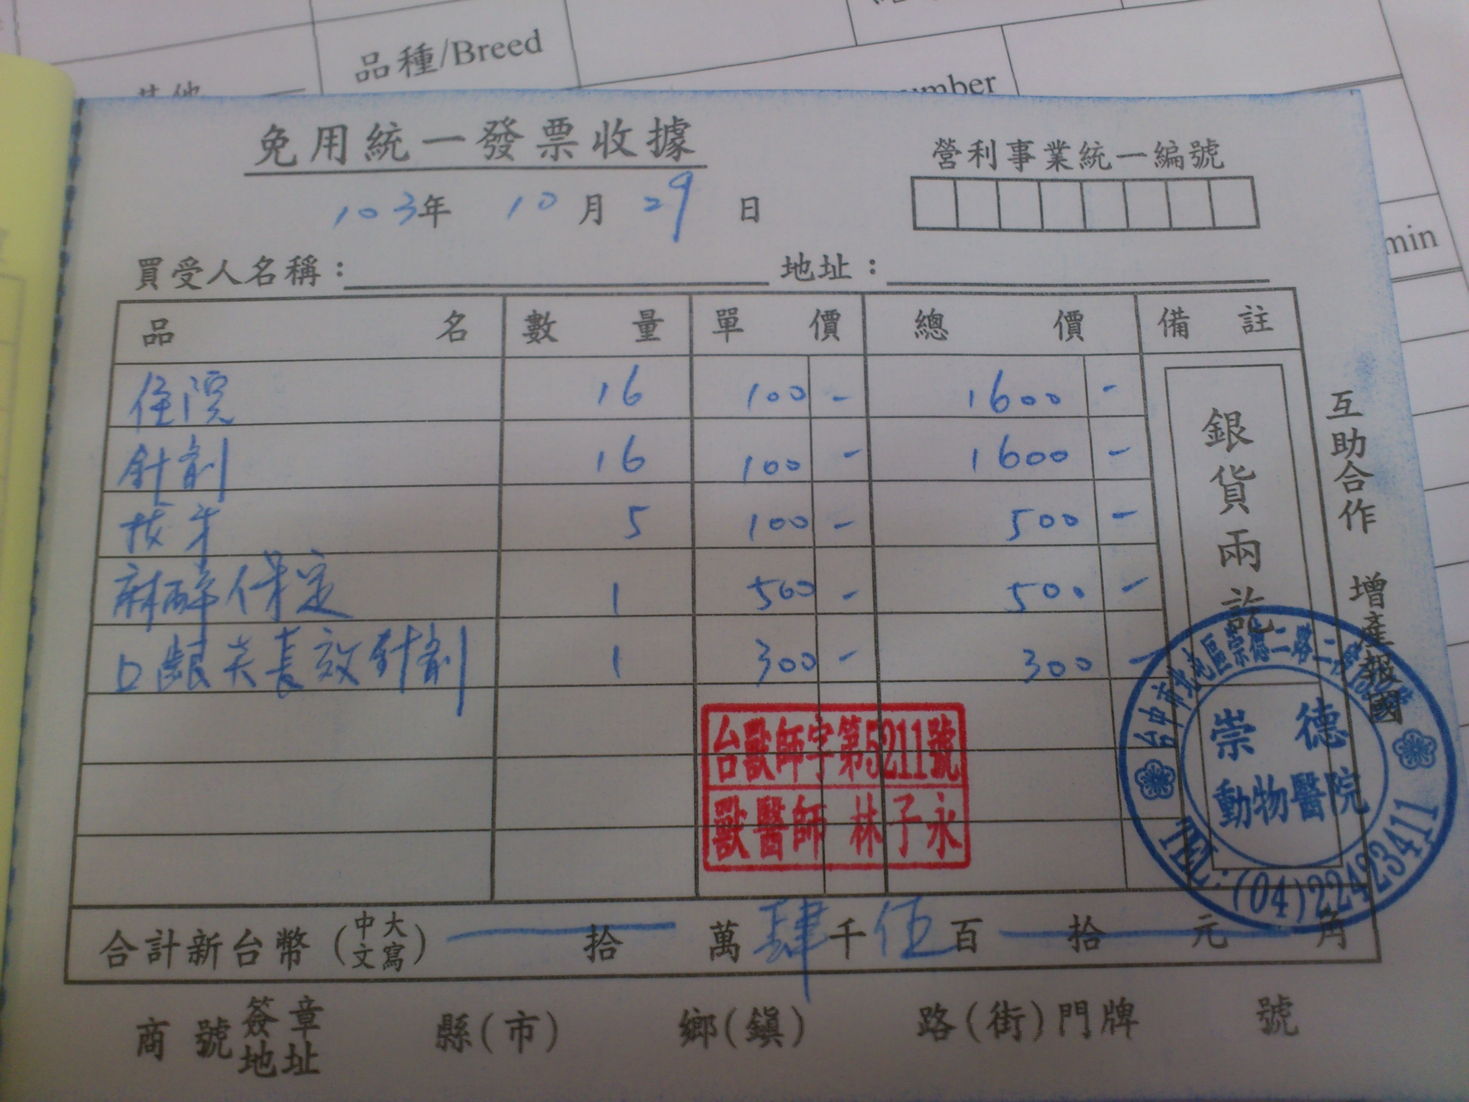 品種/Breed
免用統一發票收據
營利事業統一編號
103年 10月 29日
買受人名稱： 地址：
品名 數量 單價 總價 備註
住院 16 100 - 1600 -
針劑 16 100 - 1600 -
拔牙 5 100 - 500 -
麻醉保定 1 500 - 500 -
口齦炎長效針劑 1 300 - 300 -
銀貨兩訖
互助合作 增產報國
台獸師字第5211號
獸醫師 林子永
台中市北屯區崇德二路二段
崇德
動物醫院
TEL:(04)22423411
合計新台幣（中文大寫） 拾 萬肆千伍百 拾 元 角
商號簽章地址 縣(市) 鄉(鎮) 路(街)門牌 號